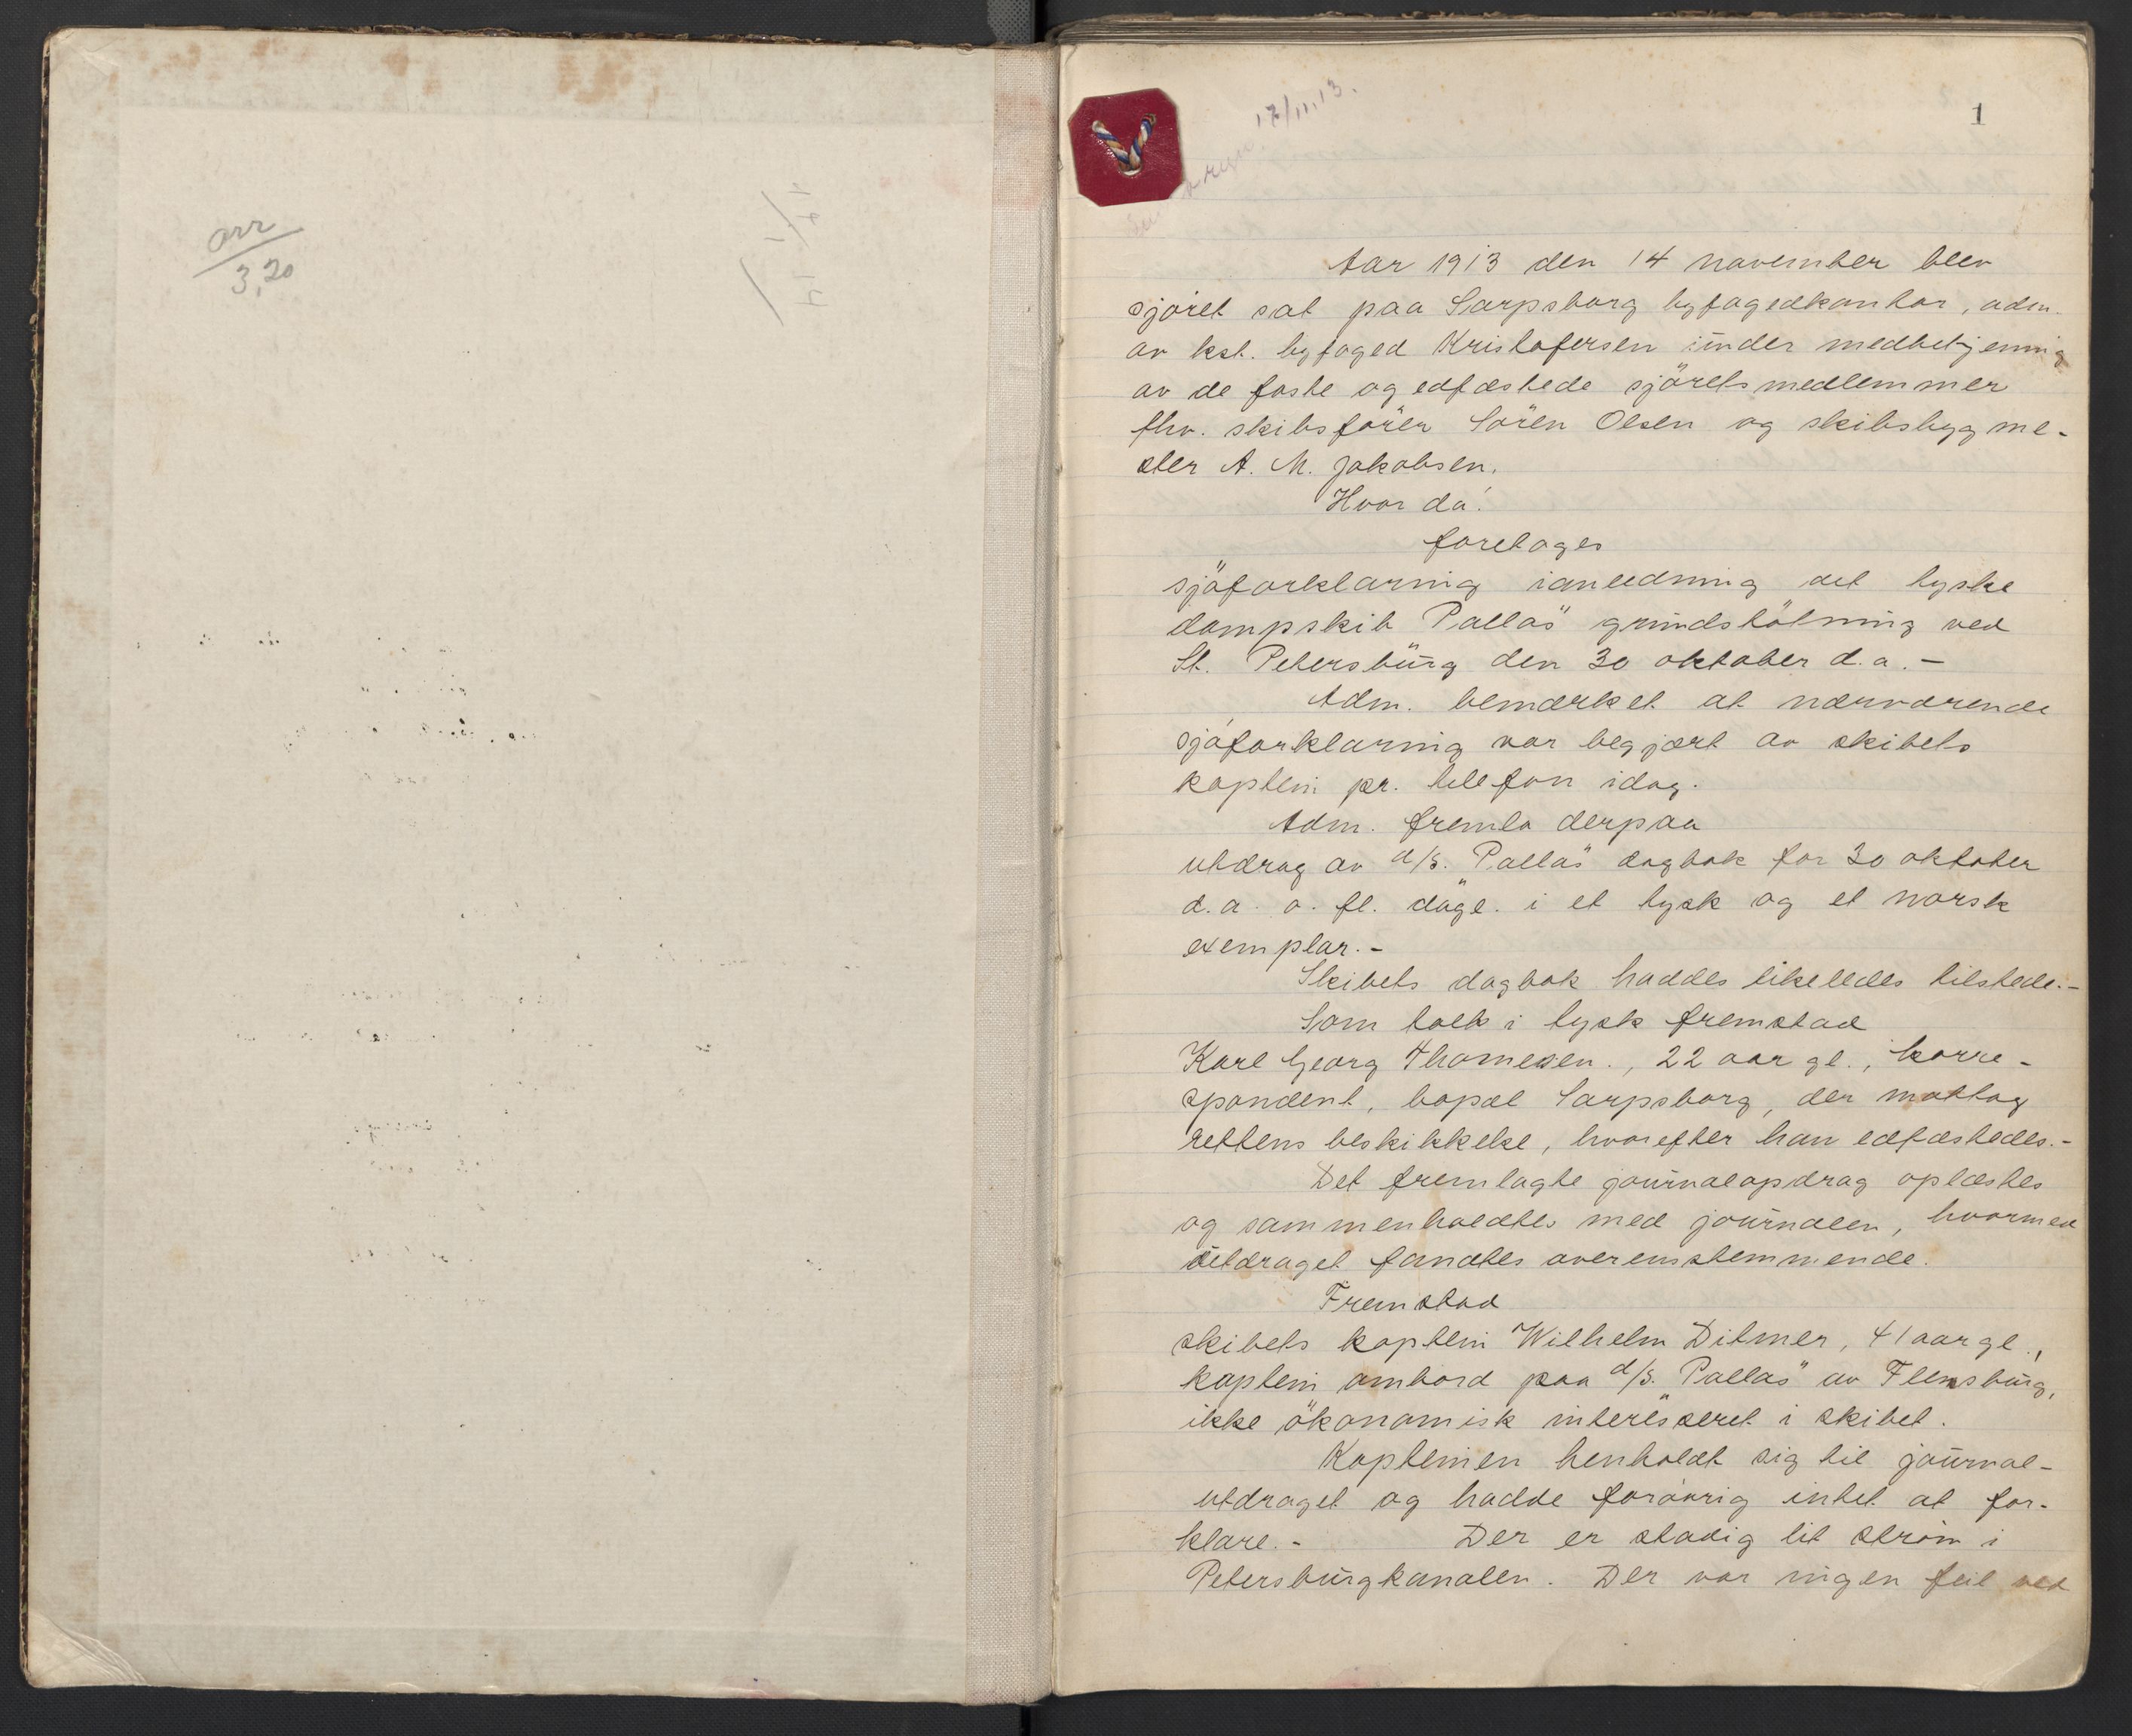 arr
3,20
17/11.13.
1
Aar 1913 den 14 november blev
sjøret sat paa Sarpsborg byfogedkontor, adm.
av kst. byfoged Kristofersen under medbetjening
av de faste og edfæstede sjøretsmedlemmer
fhv. skibsfører Søren Olsen og skibsbygme-
ster A. M. Jakobsen.
Hvor da!
foretoges
sjøforklaring ianledning det tyske
dampskib "Pallas" grundstøtning ved
St. Petersburg den 30 oktober d.a. —
Adm. bemærket at nærværende
sjøforklaring var begjært av skibets
kaptein pr. telefon idag.
Adm. fremla derpaa
utdrag av d/s. "Pallas" dagbok for 30 oktober
d.a. o. fl. dage. i et tysk og et norsk
exemplar. -
Skibets dagbok haddes likeledes tilstede. -
Som tolk i tysk fremstod
Karl Georg Thomesen., 22 aar gl., korre-
spondent, bopæl Sarpsborg, der mottog
rettens beskikkelse, hvorefter han edfæstedes. -
Det fremlagte journalopdrag oplæstes
og sammenholdtes med journalen, hvormed
utdraget fandtes overensstemmende.
Fremstod
skibets kaptein Wilhelm Ditmer, 41 aar gl.,
kaptein ombord paa d/s. "Pallas" av Flensburg,
ikke økonomisk interesseret i skibet.
Kapteinen henholdt sig til journal-
utdraget og hadde forøvrig intet at for-
klare. - Der er stadig lit strøm i
Petersburgkanalen. Der var ingen feil ved